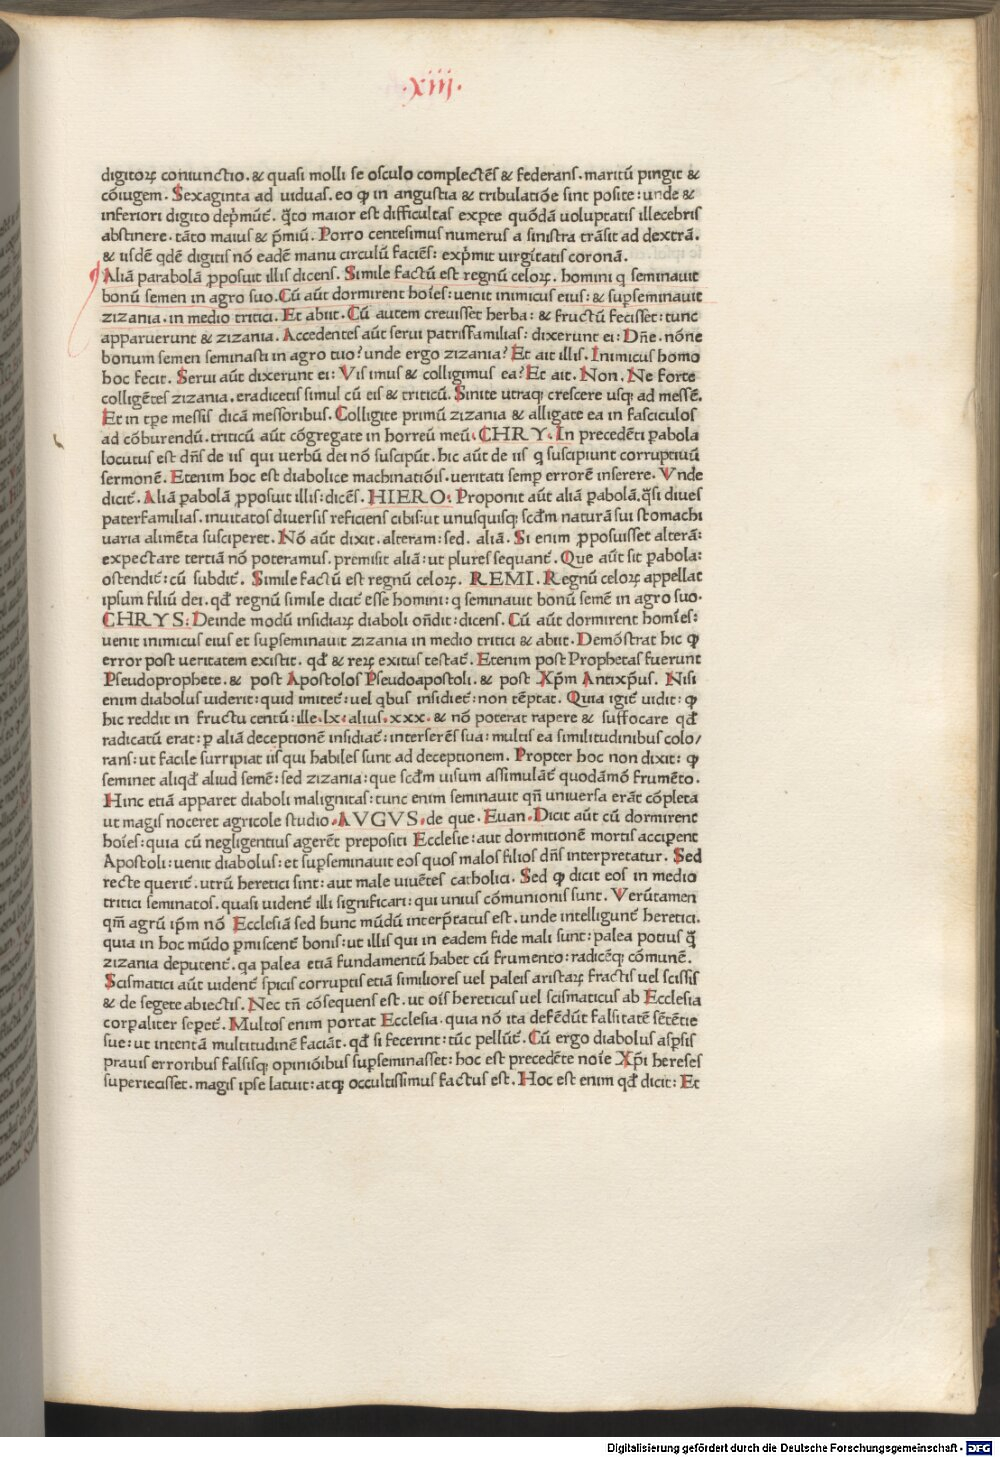 .xiij.
digitoꝝ coniunctio. & quasi molli se osculo complectẽs & federans. maritũ pingit &
cõiugem. Sexaginta ad uiduas. eo ꝙ in angustia & tribulatiõe sint posite: unde &
inferiori digito dep̃mũt̃. q̃to maior est difficultas exꝑte quõdã uoluptatis illecebris
abstinere. tãto maius & p̃miũ. Porro centesimus numerus a sinistra trãsit ad dextrã.
& iisdẽ qdẽ digitis nõ eadẽ manu circulũ faciẽs: exp̃mit uirgĩtatis coronã.
Aliã parabolã ꝓposuit illis dicens. Simile factũ est regnũ celoꝝ. homini q seminauit
bonũ semen in agro suo. Cũ aũt dormirent hoĩes: uenit inimicus eius: & suꝑseminauit
zizania. in medio tritici. Et abiit. Cũ autem creuisset herba: & fructũ fecisset: tunc
apparuerunt & zizania. Accedentes aũt serui patrisfamilias: dixerunt ei: Dñe. nõne
bonum semen seminasti in agro tuo? unde ergo zizania? Et ait illis. Inimicus homo
hoc fecit. Serui aũt dixerunt ei: Vis imus & colligimus ea? Et ait. Non. Ne forte
colligẽtes zizania. eradicetis simul cũ eis & triticũ. Sinite utraqꝫ crescere usqꝫ ad messẽ.
Et in tꝑe messis dicã messoribus. Colligite primũ zizania & alligate ea in fasciculos
ad cõburendũ. triticũ aũt cõgregate in horreũ meũ. CHRY. In precedẽti ꝑabola
locutus est dñs de iis qui uerbũ dei nõ suscipũt. hic aũt de iis q suscipiunt corruptiuũ
sermonẽ. Etenim hoc est diabolice machinatiõis. ueritati semꝑ errorẽ inserere. Vnde
dicit̃. Aliã ꝑabolã ꝓposuit illis: dicẽs. HIERO. Proponit aũt aliã ꝑabolã. q̃si diues
paterfamilias. inuitatos diuersis reficiens cibis: ut unusquisqꝫ scd̃m naturã sui stomachi
uaria alimẽta susciperet. Nõ aũt dixit. alteram: sed. aliã. Si enim ꝓposuisset alterã:
expectare tertiã nõ poteramus. premisit aliã: ut plures sequant̃. Que aũt sit ꝑabola:
ostendit̃: cũ subdit̃. Simile factũ est regnũ celoꝝ. REMI. Regnũ celoꝝ appellat
ipsum filiũ dei. qđ regnũ simile dicit̃ esse homini: q seminauit bonũ semẽ in agro suo.
CHRYS: Deinde modũ insidiaꝝ diaboli oñdit: dicens. Cũ aũt dormirent homĩes:
uenit inimicus eius et suꝑseminauit zizania in medio tritici & abiit. Demõstrat hic ꝙ
error post ueritatem existit. qđ & reꝝ exitus testat̃. Etenim post Prophetas fuerunt
Pseudoprophete. & post Apostolos Pseudoapostoli. & post Xp̃m Antixp̃us. Nisi
enim diabolus uiderit: quid imitet̃: uel qbus insidiet̃: non tẽptat. Quia igit̃ uidit: ꝙ
hic reddit in fructu centũ: ille. lx. alius. xxx. & nõ poterat rapere & suffocare qđ
radicatũ erat: ꝑ aliã deceptionẽ insidiat̃: interserẽs sua: multis ea similitudinibus colo/
rans: ut facile surripiat iis qui habiles sunt ad deceptionem. Propter hoc non dixit: ꝙ
seminet aliqđ aliud semẽ: sed zizania: que scd̃m uisum assimulãt̃ quodãmõ frumẽto.
Hinc etiã apparet diaboli malignitas: tunc enim seminauit qñ uniuersa erãt cõpleta
ut magis noceret agricole studio. AVGVS. de que. Euan. Dicit aũt cũ dormirent
hoĩes: quia cũ negligentius agerẽt prepositi Ecclesie: aut dormitionẽ mortis acciꝑent
Apostoli: uenit diabolus: et suꝑseminauit eos quos malos filios dñs interpretatur. Sed
recte querit̃. utrũ heretici sint: aut male uiuẽtes catholici. Sed ꝙ dicit eos in medio
tritici seminatos. quasi uident̃ illi significari: qui unius cõmunionis sunt. Verũtamen
qm̃ agrũ ip̃m nõ Ecclesiã sed hunc mũdũ interp̃tatus est. unde intelligunt̃ heretici.
quia in hoc mũdo ꝑmiscent̃ bonis: ut illis qui in eadem fide mali sunt: palea potius q̃
zizania deputent̃. qa palea etiã fundamentũ habet cũ frumento: radicẽqꝫ cõmunẽ.
Scismatici aũt uident̃ spicis corruptis etiã similiores uel paleis aristaꝝ fractis uel scissis
& de segete abiectis. Nec tñ cõsequens est. ut oĩs hereticus uel scismaticus ab Ecclesia
corꝑaliter seꝑet̃. Multos enim portat Ecclesia. quia nõ ita defẽdũt falsitatẽ sẽtẽtie
sue: ut intentã multitudinẽ faciãt. qđ si fecerint: tũc pellũt̃. Cũ ergo diabolus asꝑsis
prauis erroribus falsisqꝫ opiniõibus suꝑseminasset: hoc est precedẽte noĩe Xp̃i hereses
superiecisset. magis ipse latuit: atqꝫ occultissimus factus est. Hoc est enim qđ dicit: Et
Digitalisierung gefördert durch die Deutsche Forschungsgemeinschaft - DFG